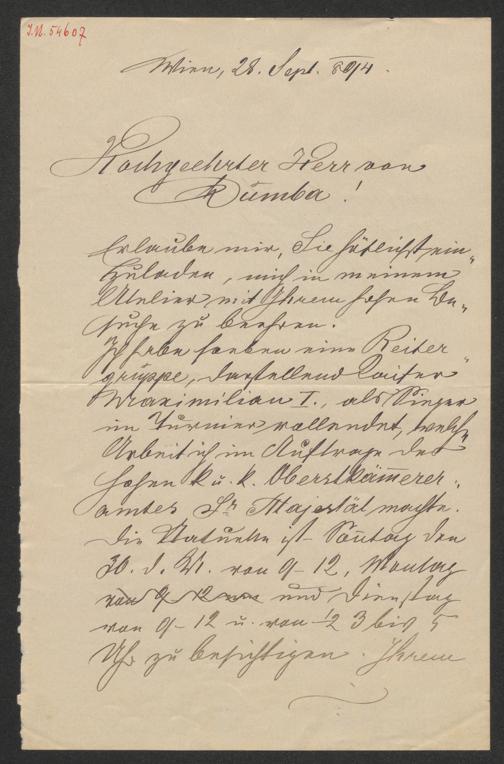 I.N. 54607
Wien, 28. Sept. 894.
Hochgeehrter Herr von
Dumba!
Erlaube mir, Sie höflichst ein„
zuladen, mich in meinem
Atelier mit Ihrem hohen Be„
suche zu beehren.
Ich habe soeben eine Reiter„
gruppe, darstellend Kaiser
Maximilian I., als Sieger
im Turnier vollendet, welch„
Arbeit ich im Auftrage des
hohen k. u. k. Oberstkämerer„
amtes Sr Majestät machte.
Die Statuette ist Sontag den
30. d. M. von 9–12, Montag
von 9–12 und Dienstag
von 9–12 u. von ½ 3 bis 5
Uhr zu besichtigen. Ihrem